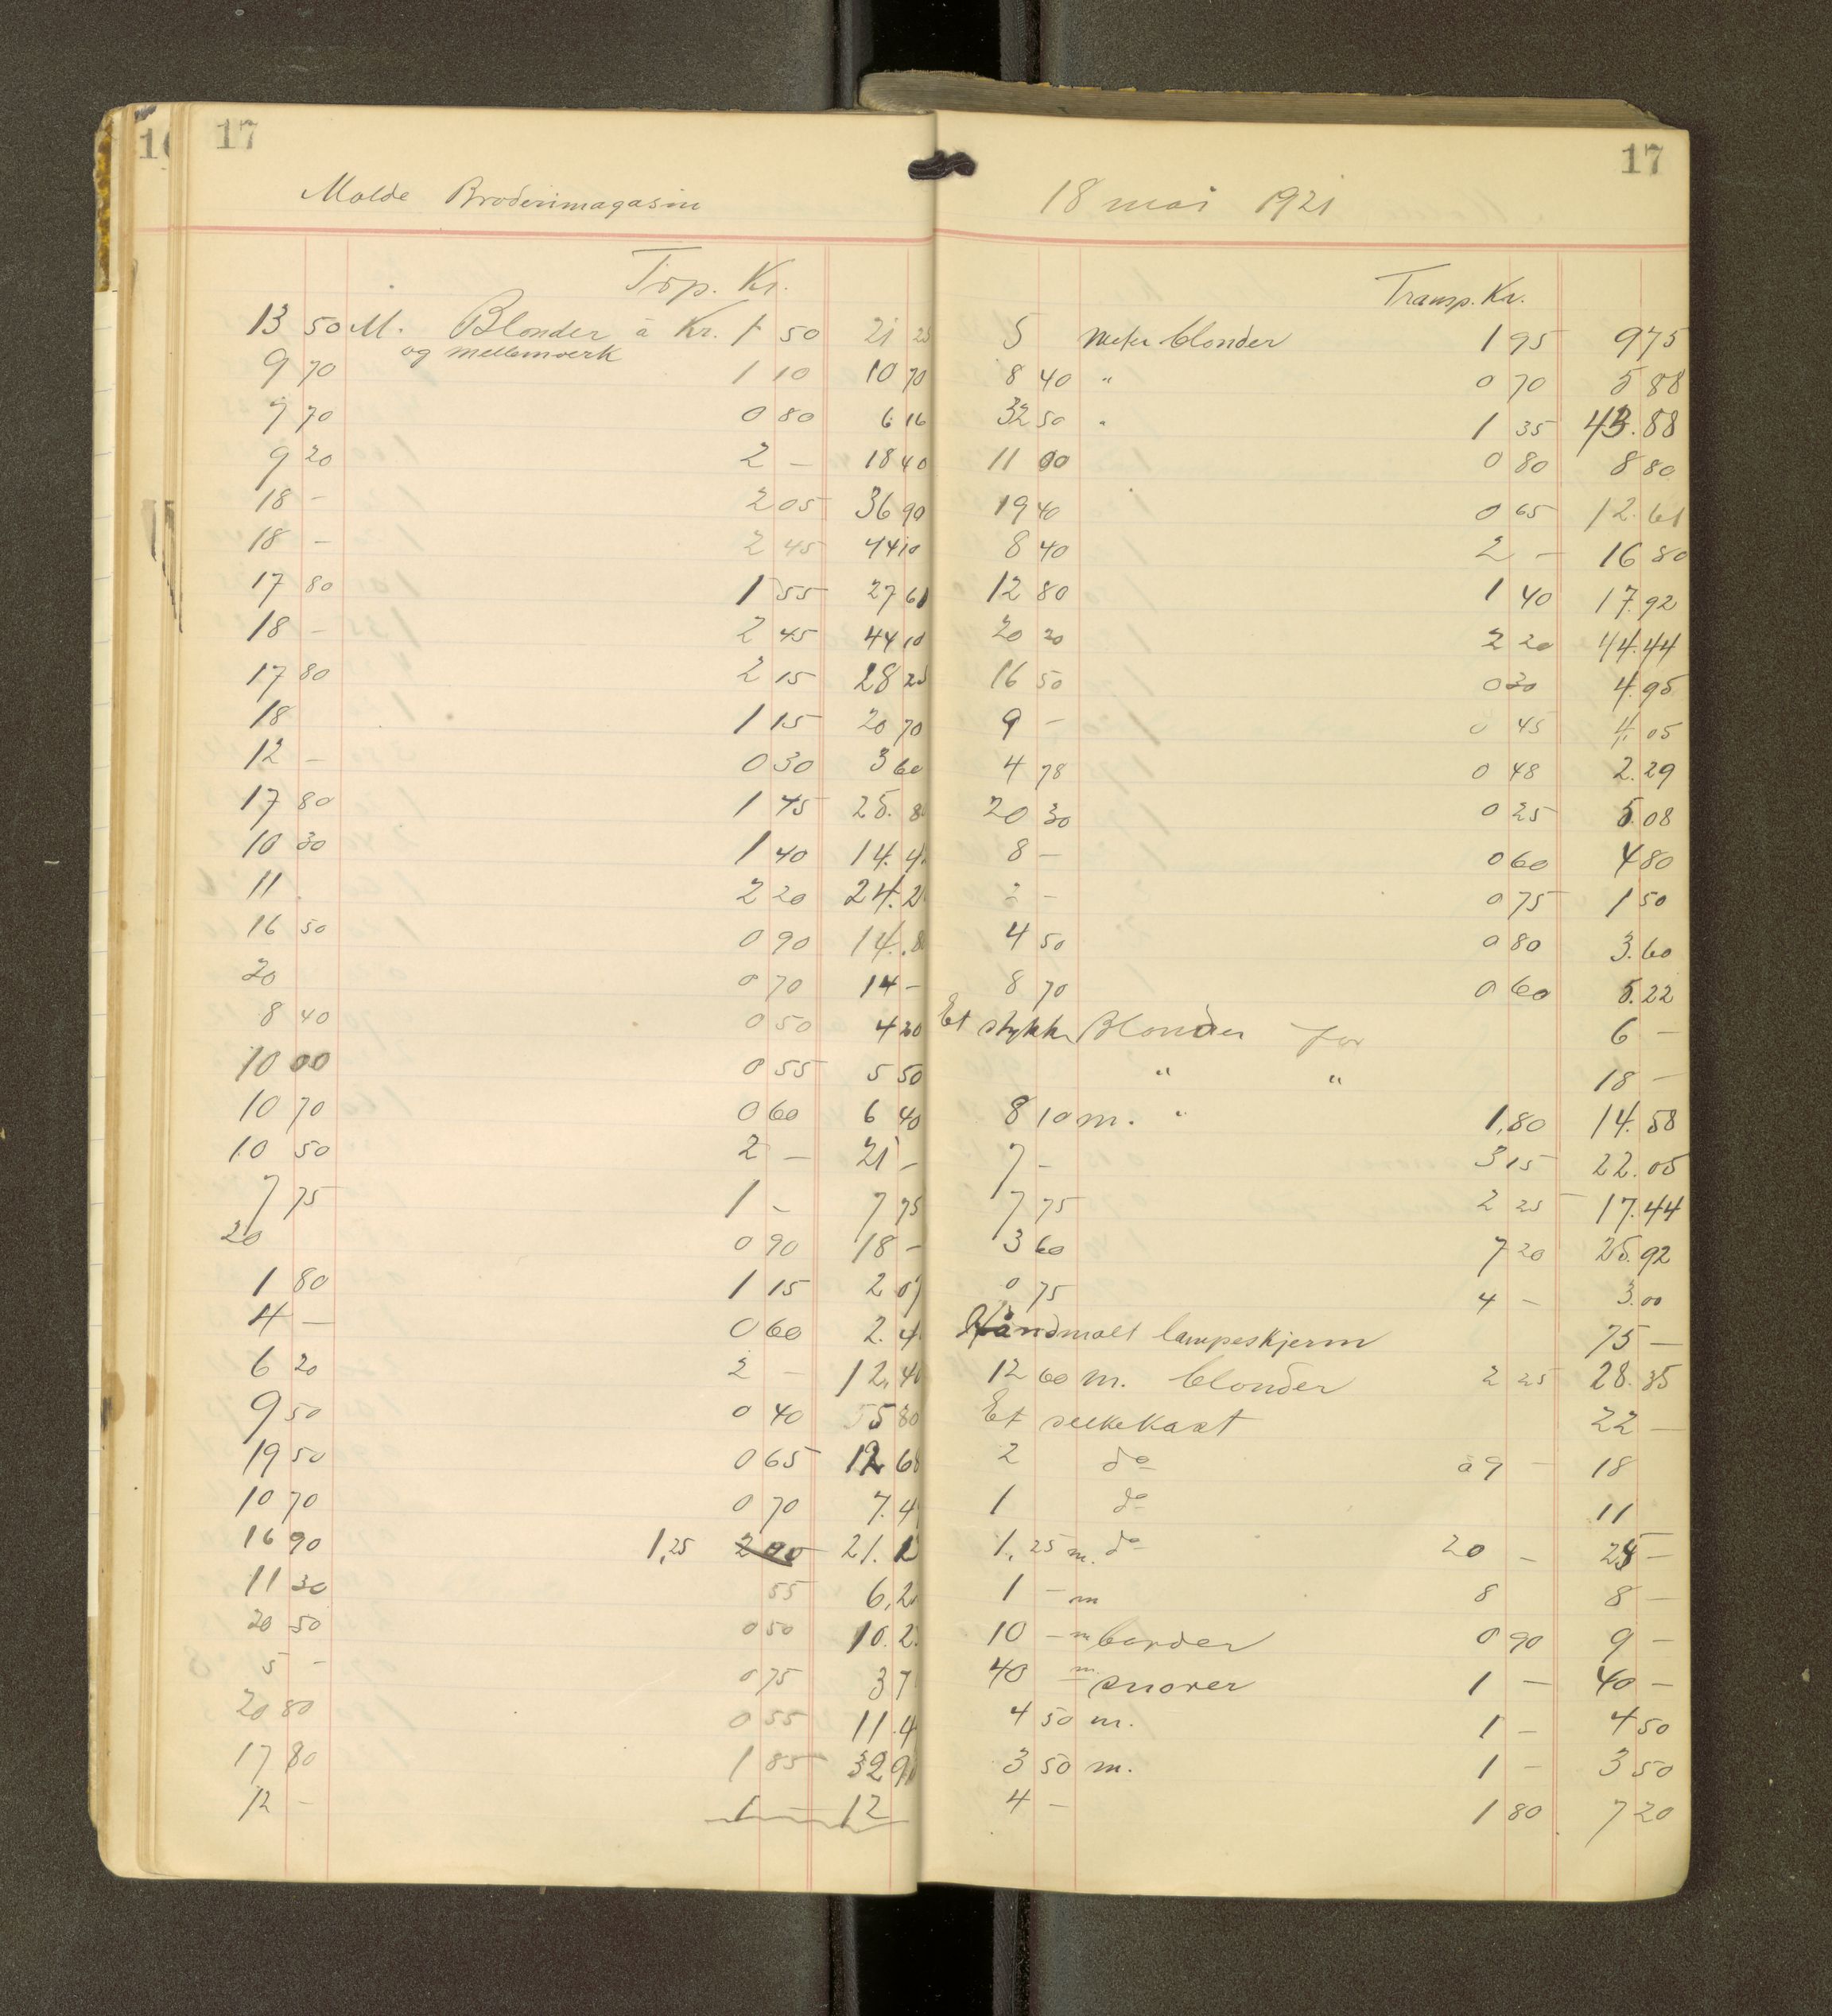 16
17
Molde Broderimagasin
Trp. Kr.
13 50 M. Blonder à Kr. 1 50 21 25
og mellemverk
9 70 1 10 10 70
7 70 0 80 6 16
9 20 2 — 18 40
18 — 2 05 36 90
18 — 2 45 44 10
17 80 1 55 27 61
18 — 2 45 44 10
17 80 2 15 28 25
18 1 15 20 70
12 — 0 30 3 60
17 80 1 45 25. 8
10 30 1 40 14. 4
11 2 20 24. 2
16 50 0 90 14. 8
20 0 70 14 —
8 40 0 50 4 20
10 00 0 55 5 50
10 70 0 60 6 40
10 50 2 — 21 —
7 75 1 — 7 75
20 0 90 18 —
1 80 1 15 2 07
4 — 0 60 2. 4
6 20 2 — 12. 40
9 50 0 40 5 80
19 50 0 65 12 68
10 70 0 70 7. 4
16 90 1,25 2 00 21. 12
11 30 55 6,2
20 50 0 50 10. 2
5 — 0 75 3 7
20 80 0 55 11. 4
17 80 1 85 32 9
12 — 1 — 12
17
18 mai 1921
Transp. Kr.
5 Meter blonder 1 95 9 75
8 40 " 0 70 5 88
32 50 " 1 35 43. 88
11 00 0 80 8 80
19 40 0 65 12. 61
8 40 2 — 16 80
12 80 1 40 17. 92
20 20 2 20 44. 44
16 50 0 30 4. 95
9 — 0 45 4. 05
4 78 0 48 2. 29
20 30 0 25 5. 08
8 — 0 60 4 80
2 — 0 75 1 50
4 50 0 80 3. 60
8 70 0 60 5. 22
Et stykke Blonder for 6 —
" " 18 —
8 10 m. " 1,80 14. 58
7 — 3 15 22. 05
7 75 2 25 17. 44
3 60 7 20 25. 92
0 75 4 — 3. 00
Håndmalt lampeskjerm 75 —
12 60 m. blonder 2 25 28. 35
Et silkekast 22 —
2 do à 9 — 18
1 do 11
1,25 m. do 20 — 25 —
1 — m 8 8 —
10 — m border 0 90 9 —
40 m. snorer 1 — 40 —
4 50 m. 1 — 4 50
3 50 m. 1 — 3 50
4 — 1 80 7 20